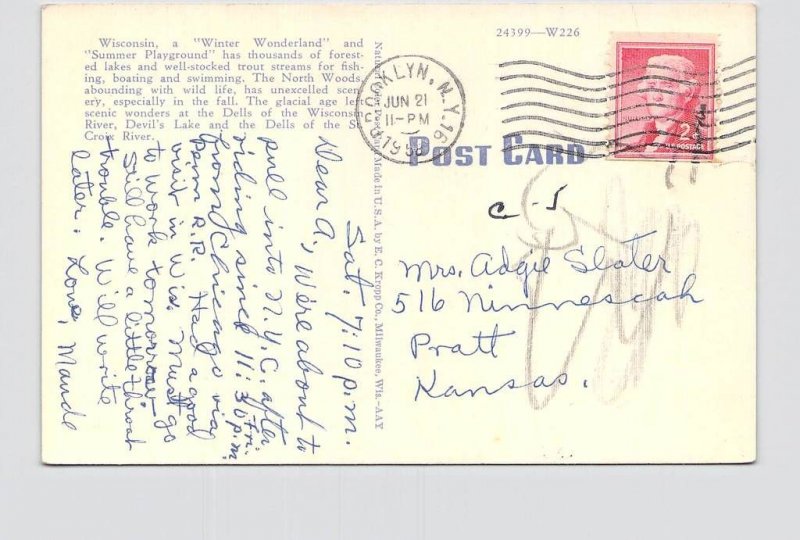 Wisconsin, a "Winter Wonderland" and
"Summer Playground" has thousands of forest-
ed lakes and well-stocked trout streams for fish-
ing, boating and swimming. The North Woods,
abounding with wild life, has unexcelled scen-
ery, especially in the fall. The glacial age left
scenic wonders at the Dells of the Wisconsin
River, Devil's Lake and the Dells of the St.
Croix River.
24399—W226
BROOKLYN, N.Y. 16
JUN 21
11-PM
2¢
U.S. POSTAGE
POST CARD
Made in U.S.A. by E. C. Kropp Co., Milwaukee, Wis.-AAY
Sat. 7:10 p.m.
Dear A, We're about to
pull into N.Y.C. after
riding since 11:30 p.m. Fri.
from Chicago via
Penn R.R. Had a good
visit in Wis. Must go
to work tomorrow.
Still have a little throat
trouble. Will write
later. Love, Maude
C-5
Mrs. Adgie Slater
516 Ninnescah
Pratt
Kansas.